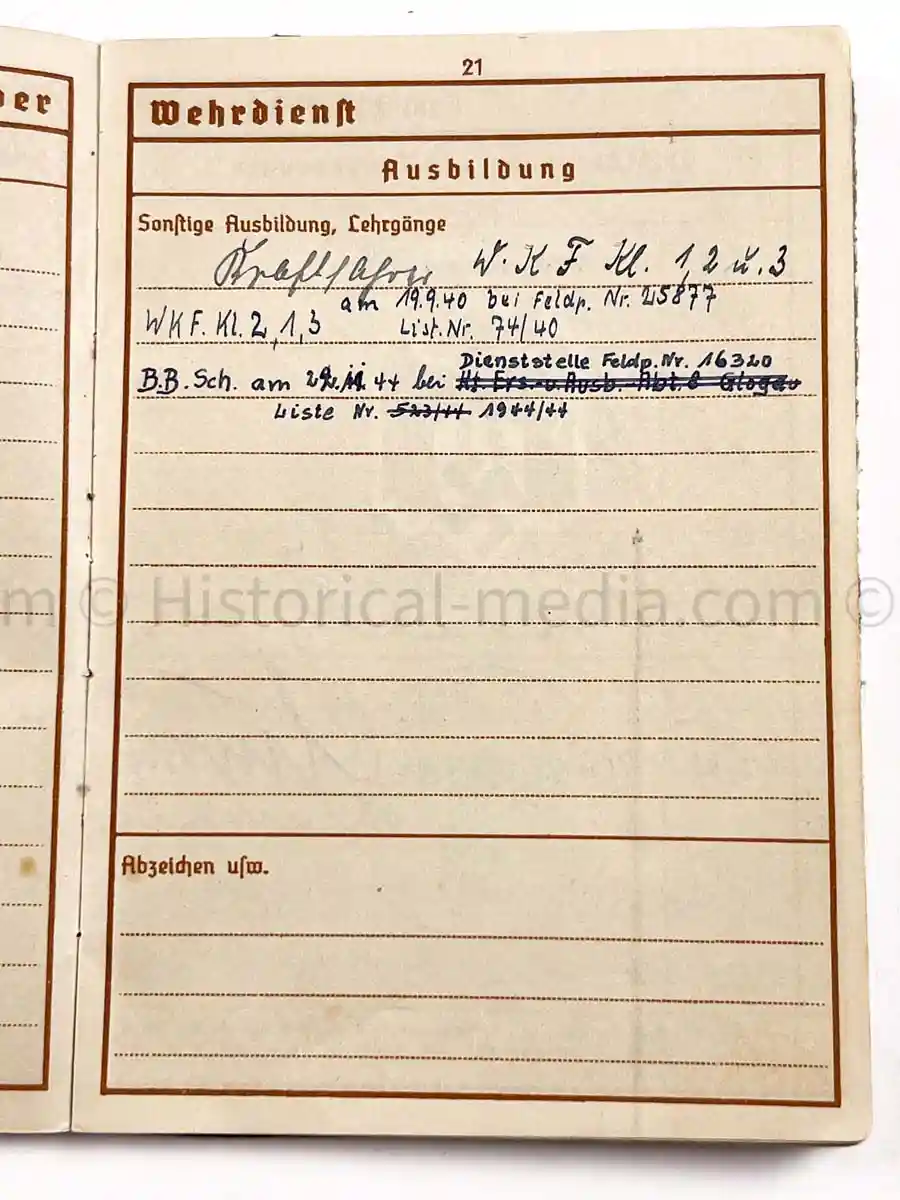 der
21
Wehrdienst
Ausbildung
Sonstige Ausbildung, Lehrgänge
Kraftfahrer W. K F Kl. 1, 2 u. 3
am 19.9.40 bei Feldp. Nr. 25877
WKF. Kl. 2, 1, 3 List. Nr. 74/40
Dienststelle Feldp. Nr. 16320
B.B. Sch. am 44 bei Kf. Ers.- u. Ausb. Abt. 8 Glogau
Liste Nr. 523/44 1944/44
m © Historical-media.com ©
Abzeichen usw.